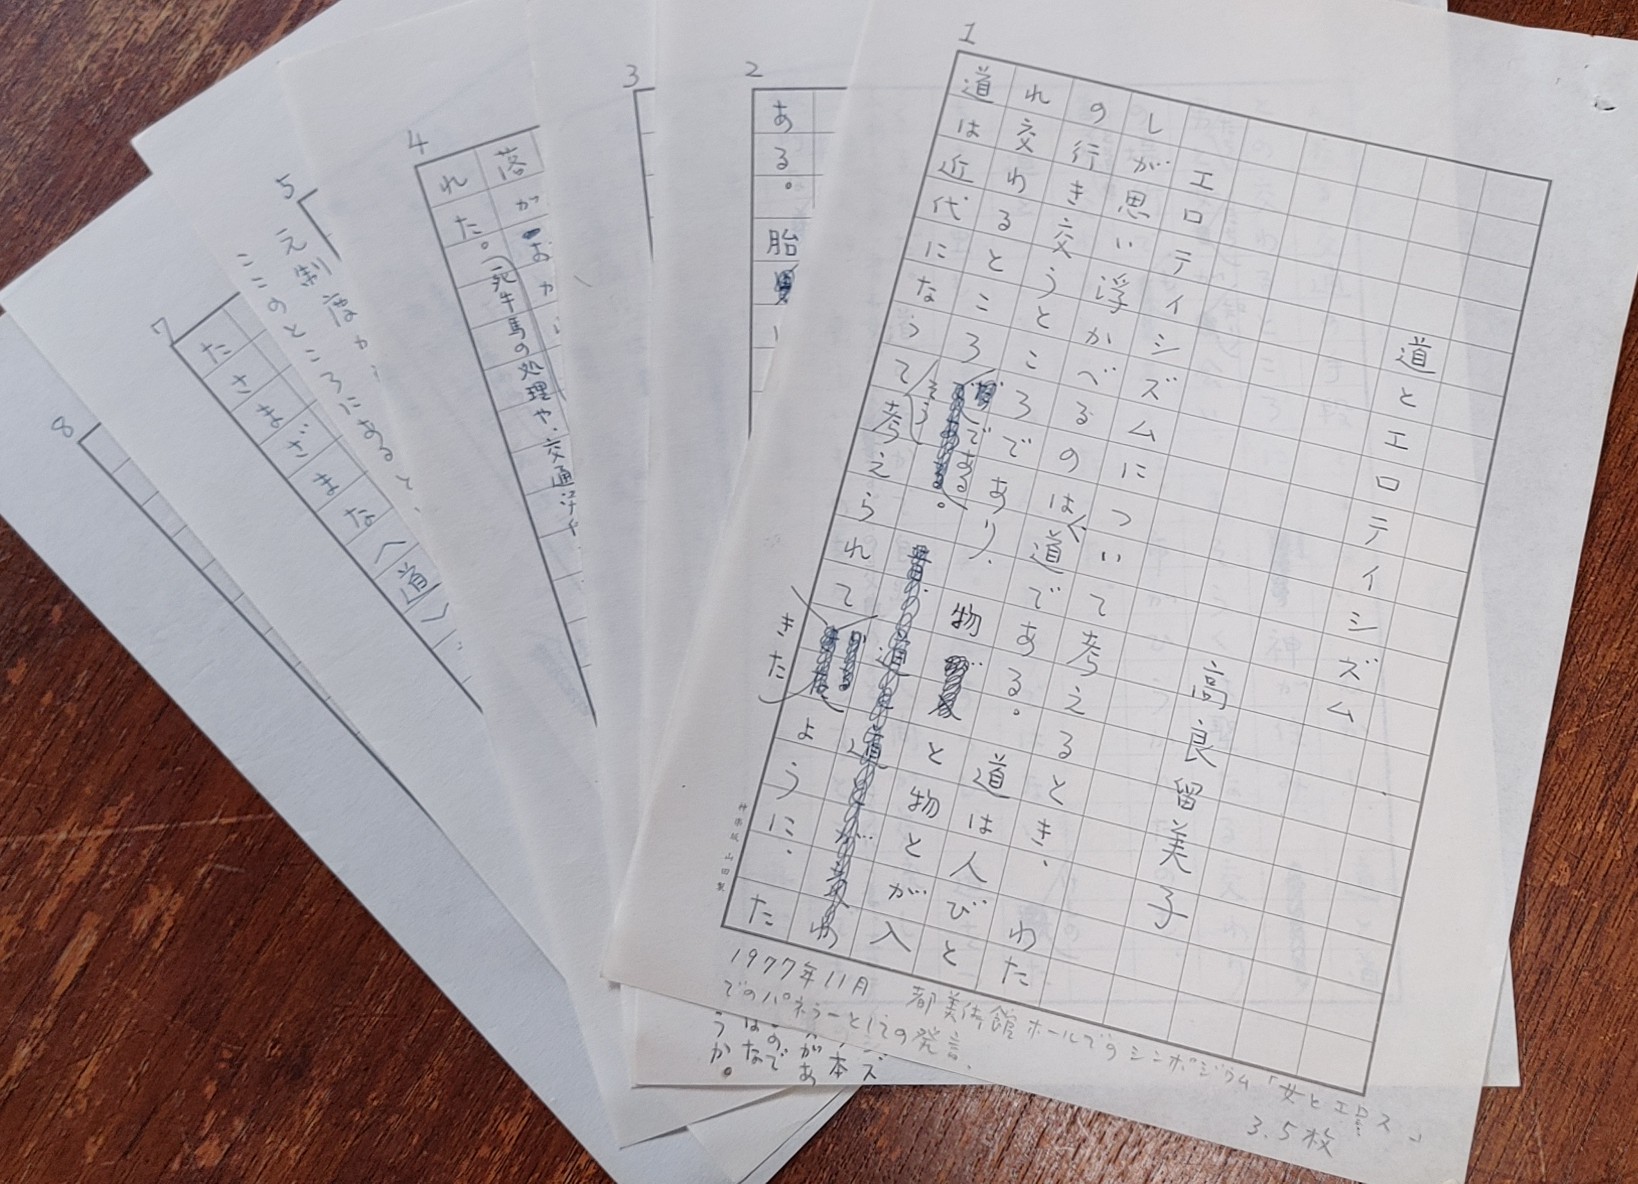 1
道とエロティシズム
高良留美子
エロティシズムについて考えるとき、わた
しが思い浮かべるのは道である。道は人びと
の行き交うところであり、物と物とが入
れ交わるところである。
道は近代になってそう考えられてきたように、た
神楽坂 山田製
1977年11月 都美術館ホールでのシンポジウム「女とエロス」
でのパネラーとしての発言、
3.5枚
2
ある。胎
ズ
本
があ
ので
はな
うか。
3
4
落がお
れた。(死牛馬の処理や、交通
5
元制度が
ここのところにあると、
7
たさまざまな〈道〉
8